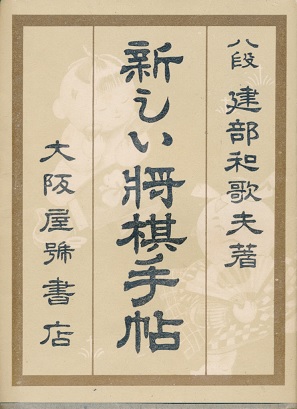 八段 建部和歌夫著
新しい將棋手帖
大阪屋號書店